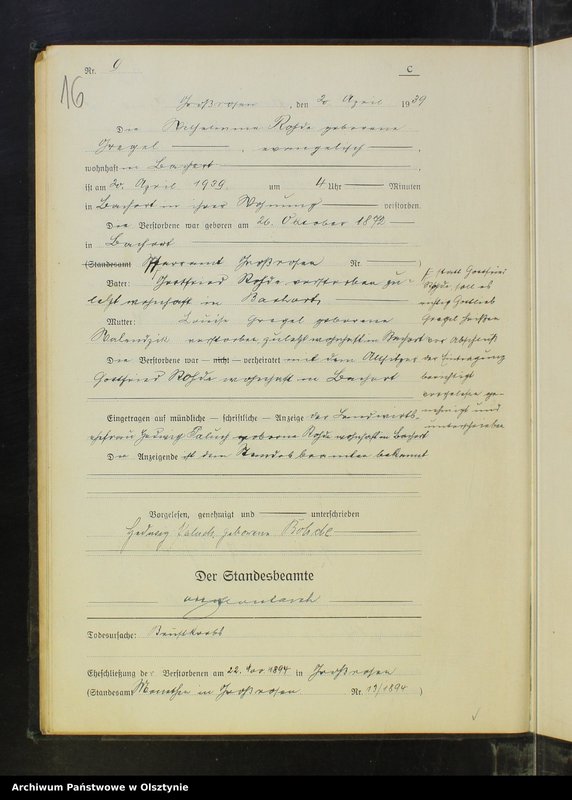 Nr. 9
C
16
Großrosen, den 20. April 1939
Die Wilhelmine Rohde geborene
Gregel, evangelisch,
wohnhaft in Bachort
ist am 20. April 1939 um 4 Uhr Minuten
in Bachort in ihrer Wohnung verstorben.
Die Verstorbene war geboren am 26. Oktober 1872
in Bachort
(Standesamt Pfarramt Großrosen Nr. )
Vater: Gottfried Rohde verstorben zu-
letzt wohnhaft in Bachort
Mutter: Louise Gregel geborene
verstorben zuletzt wohnhaft in Bachort
Die Verstorbene war — nicht — verheiratet mit dem Altsitzer
Gottfried Rohde wohnhaft in Bachort
statt Gottfried
Rohde soll es
richtig Gottlieb
Gregel heißen
vor Abschluß
der Eintragung
berichtigt
vorgelesen ge-
nehmigt und
unterschrieben
Eingetragen auf mündliche — schriftliche — Anzeige der Landwirts-
ehefrau Hedwig Paluch geborene Rohde wohnhaft in Bachort
Die Anzeigende ist dem Standesbeamten bekannt
Vorgelesen, genehmigt und unterschrieben
Hedwig Paluch, geborene Rohde
Der Standesbeamte
Todesursache: Brustkrebs
Eheschließung der Verstorbenen am 22. Nov 1894 in Großrosen
(Standesamt in Großrosen Nr. 13/1894 )
Archiwum Państwowe w Olsztynie